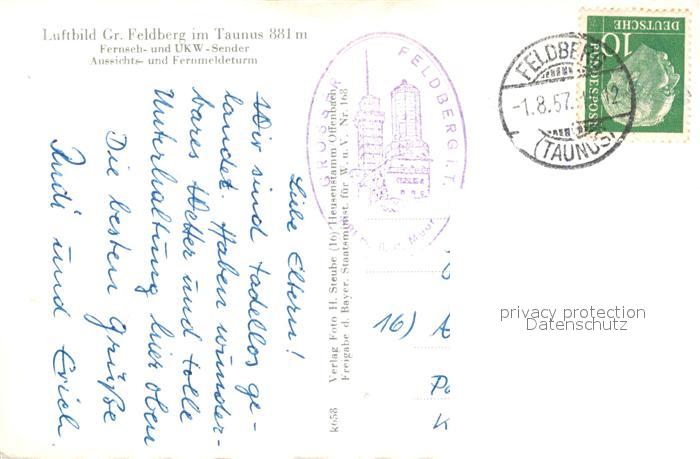 Luftbild Gr. Feldberg im Taunus 881 m
Fernseh- und UKW-Sender
Aussichts- und Fernmeldeturm
Liebe Eltern!
Wir sind tadellos ge-
landet. Haben wunder-
bares Wetter und tolle
Unterhaltung hier oben
Die besten Grüße
Rudi und Erich.
k658
Verlag Foto H. Steube (16) Heusenstamm Offenbach
Freigabe d. Bayer. Staatsminist. für W. u. V. Nr. 168
GROSSER FELDBERG i. T.
FELDBERG
-1.8.57.
12
(TAUNUS)
10
DEUTSCHE
BUNDESPOST
16) A
Po
K
privacy protection
Datenschutz